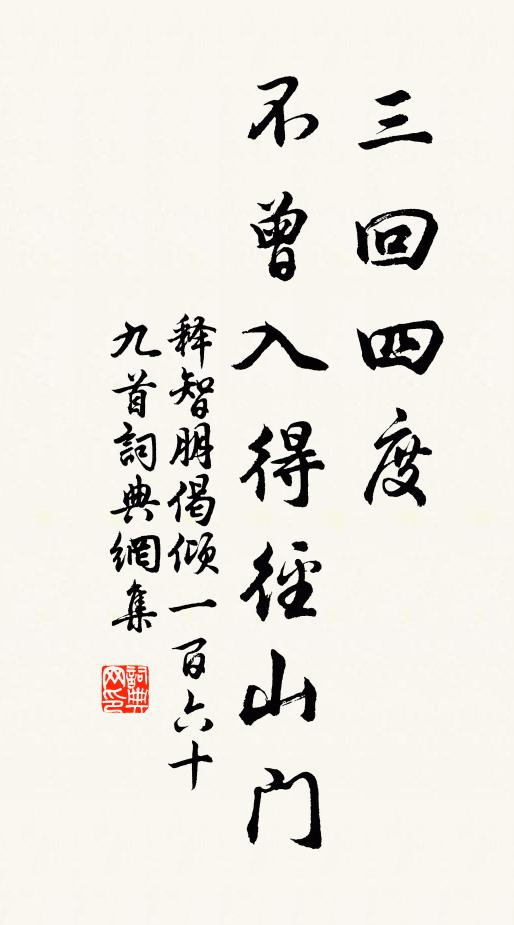 三回四度
不曾入得径山門
释智朋偈倾一百六十
九首詞典網集
詞典网印